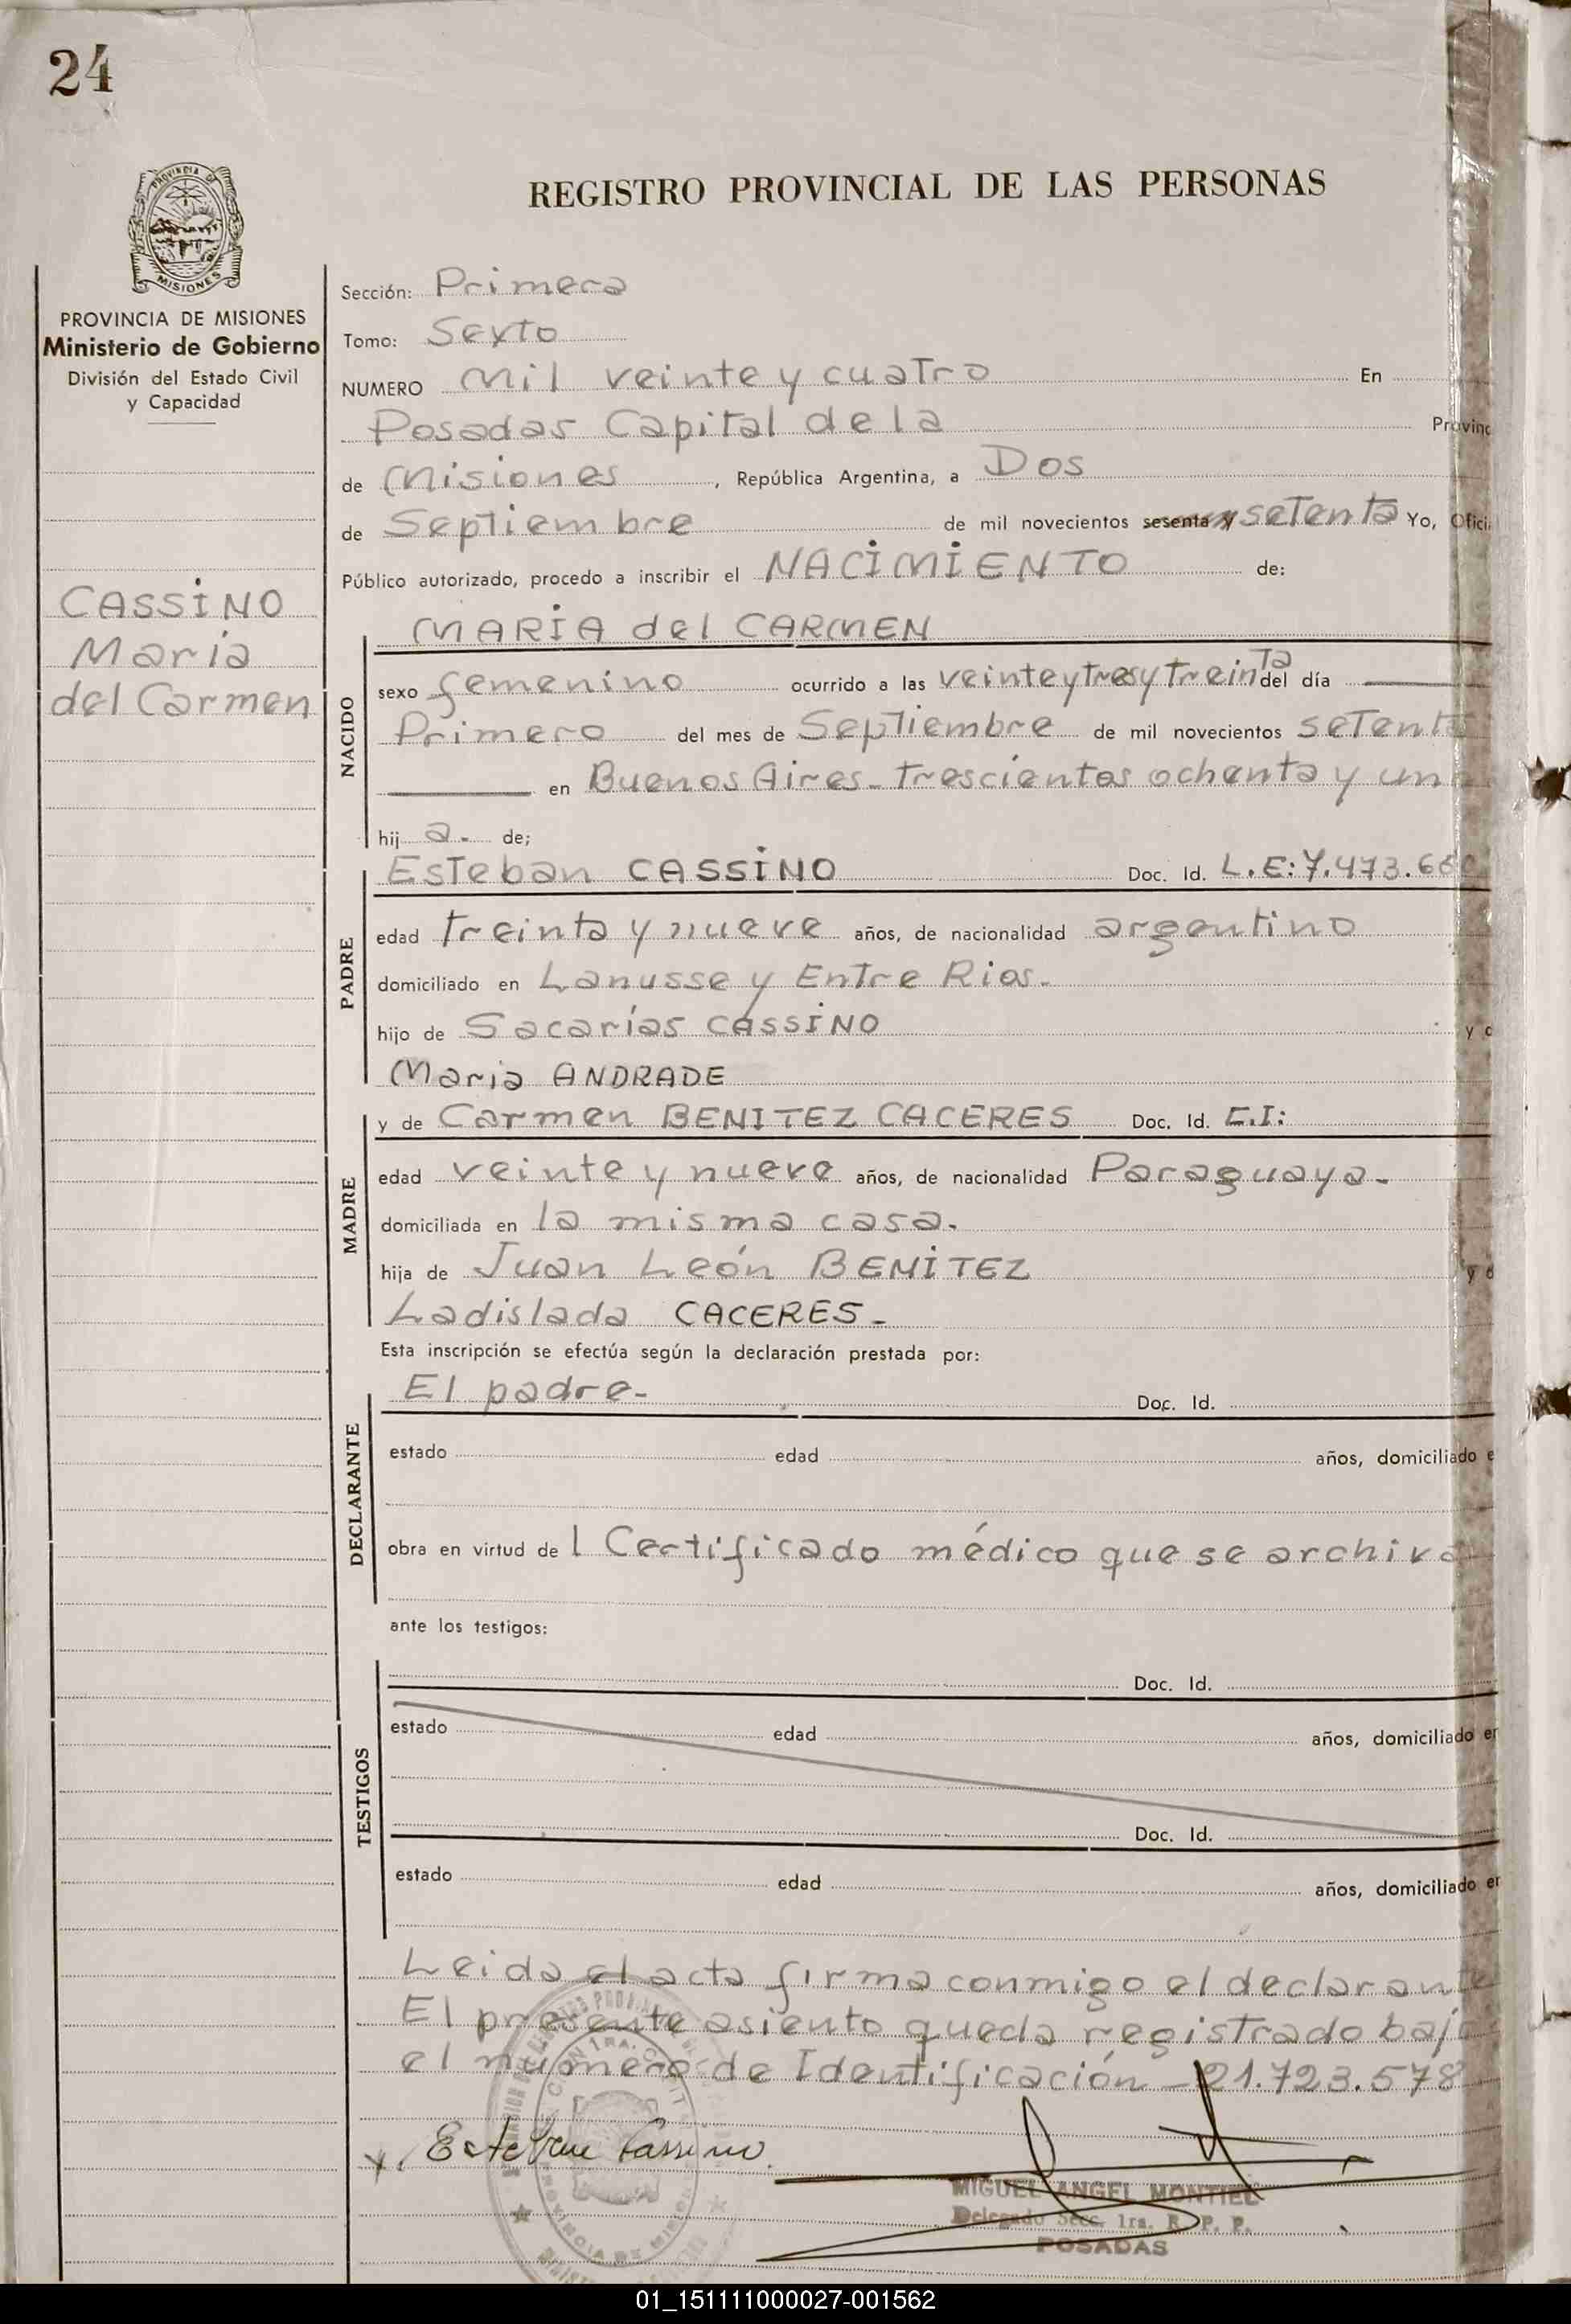 24
REGISTRO PROVINCIAL DE LAS PERSONAS
PROVINCIA DE MISIONES
Ministerio de Gobierno
División del Estado Civil
y Capacidad
CASSINO
Maria
del Carmen
Sección: Primera
Tomo: Sexto
NUMERO Mil veinte y cuatro En
Posadas Capital de la Provinc
de Misiones, República Argentina, a Dos
de Septiembre de mil novecientos sesenta y setenta Yo, Ofici
Público autorizado, procedo a inscribir el NACIMIENTO de:
NACIDO
MARIA del CARMEN
sexo femenino ocurrido a las veinte y tres y treinta del día
Primero del mes de Septiembre de mil novecientos setenta
en Buenos Aires - trescientos ochenta y un
hij a. de;
PADRE
Esteban CASSINO Doc. Id. L.E: 7.473.66
edad treinta y nueve años, de nacionalidad argentino
domiciliado en Lanusse y Entre Rios.
hijo de Sacarías CASSINO y d
Maria ANDRADE
MADRE
y de Carmen BENITEZ CACERES Doc. Id. C.I:
edad veinte y nueve años, de nacionalidad Paraguaya.
domiciliada en la misma casa.
hija de Juan León BENITEZ y d
Ladislada CACERES.
Esta inscripción se efectúa según la declaración prestada por:
DECLARANTE
El padre- Doc. Id.
estado edad años, domiciliado e
obra en virtud de l Certificado médico que se archiva
ante los testigos:
TESTIGOS
Doc. Id.
estado edad años, domiciliado en
Doc. Id.
estado edad años, domiciliado en
Leida el acta firma conmigo el declarante
El presente asiento queda registrado bajo
el numero de Identificación - 21.723.578
x. Esteban Cassino.
MIGUEL ANGEL MONTIEL
Delegado Secc. 1ra. R. P. P.
POSADAS
01_151111000027-001562